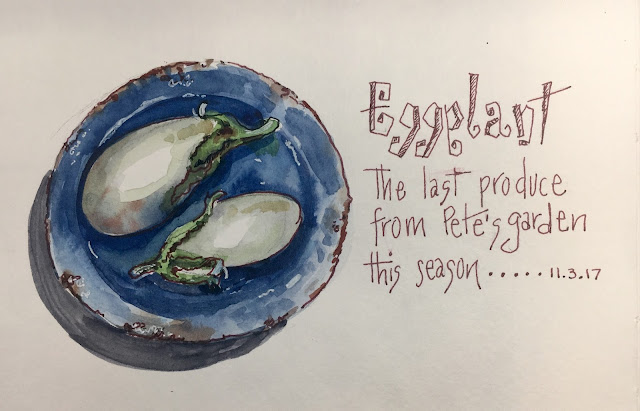 Eggplant
The last produce
from Pete's garden
this season.....11.3.17